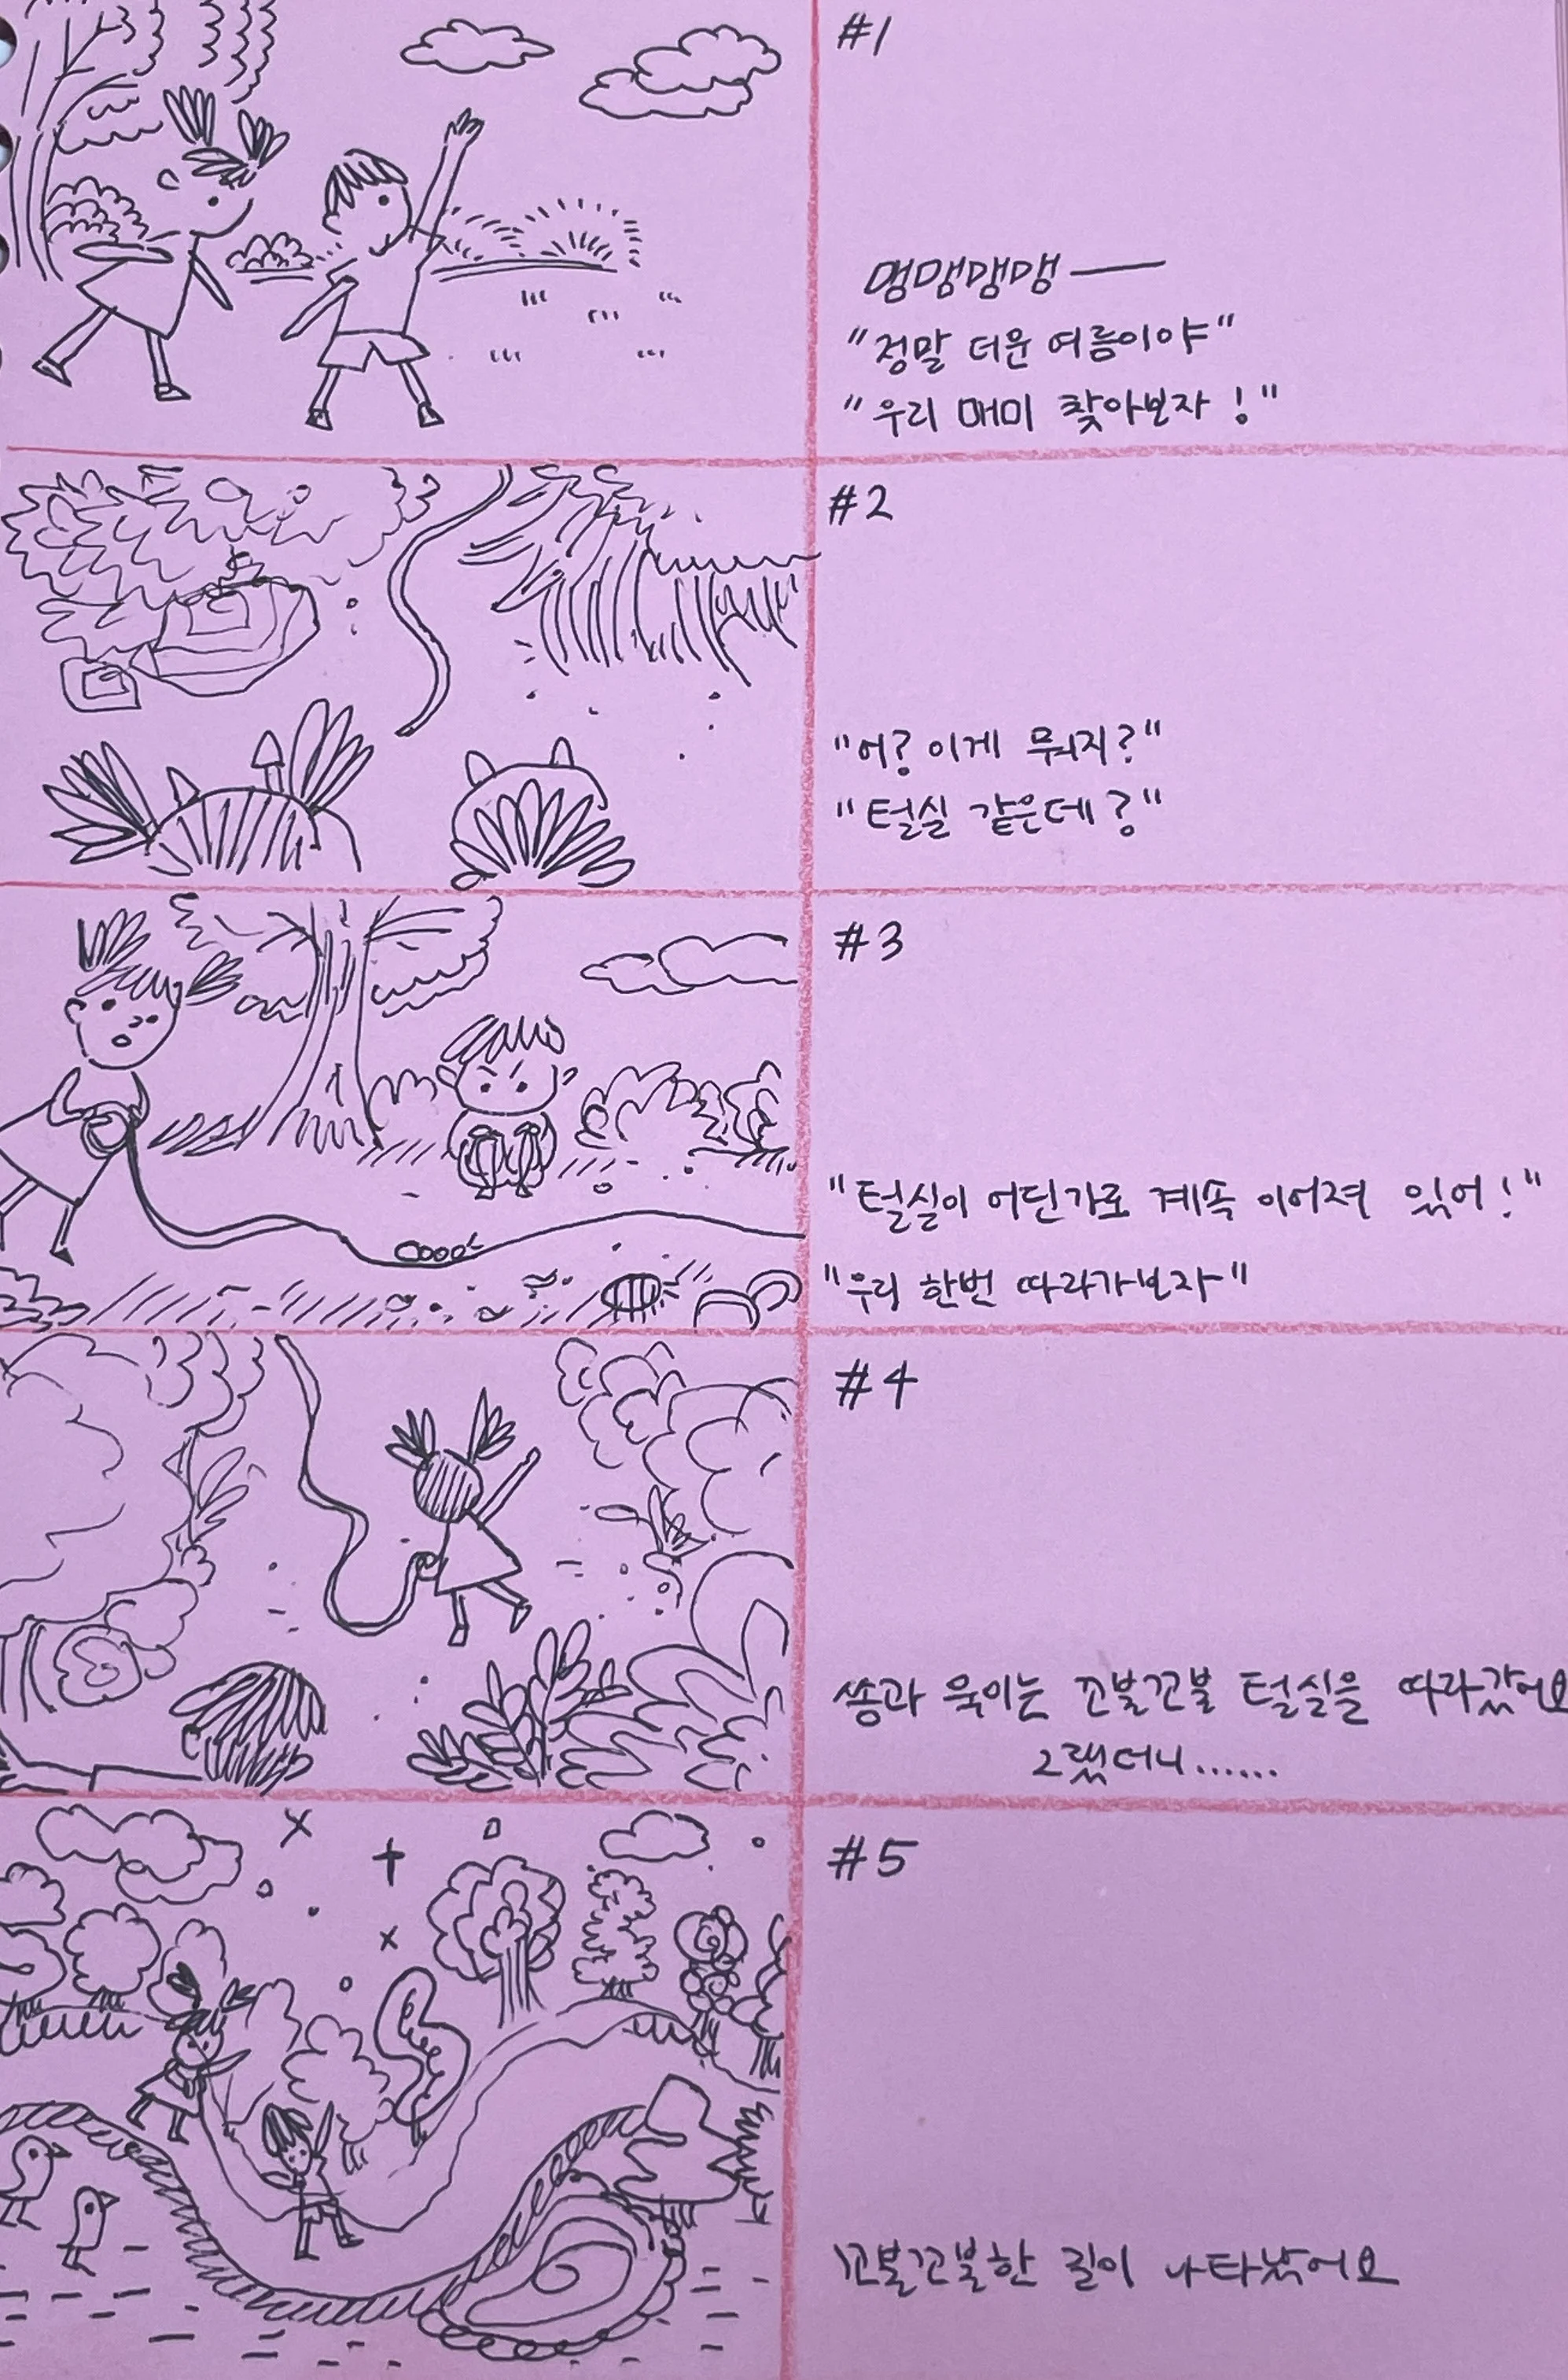 #1
멍맹맹맹 ―
"정말 더운 여름이야"
"우리 매미 찾아보자!"
#2
"어? 이게 뭐지?"
"털실 같은데?"
#3
"털실이 어딘가로 계속 이어져 있어!"
"우리 한번 따라가보자"
#4
쏭과 욱이는 꼬불꼬불 털실을 따라갔어요
그랬더니......
#5
꼬불꼬불한 길이 나타났어요